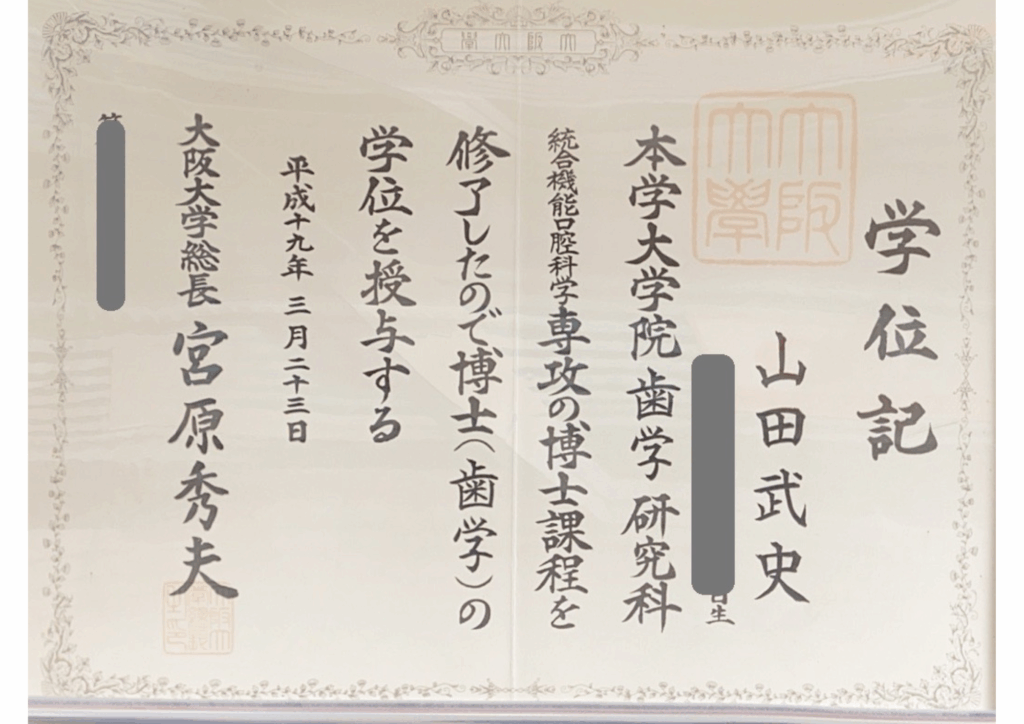 大阪大學
学位記
大阪大學
山田武史
日生
本学大学院歯学研究科
統合機能口腔科学専攻の博士課程を
修了したので博士（歯学）の
学位を授与する
平成十九年三月二十三日
大阪大学総長 宮原秀夫